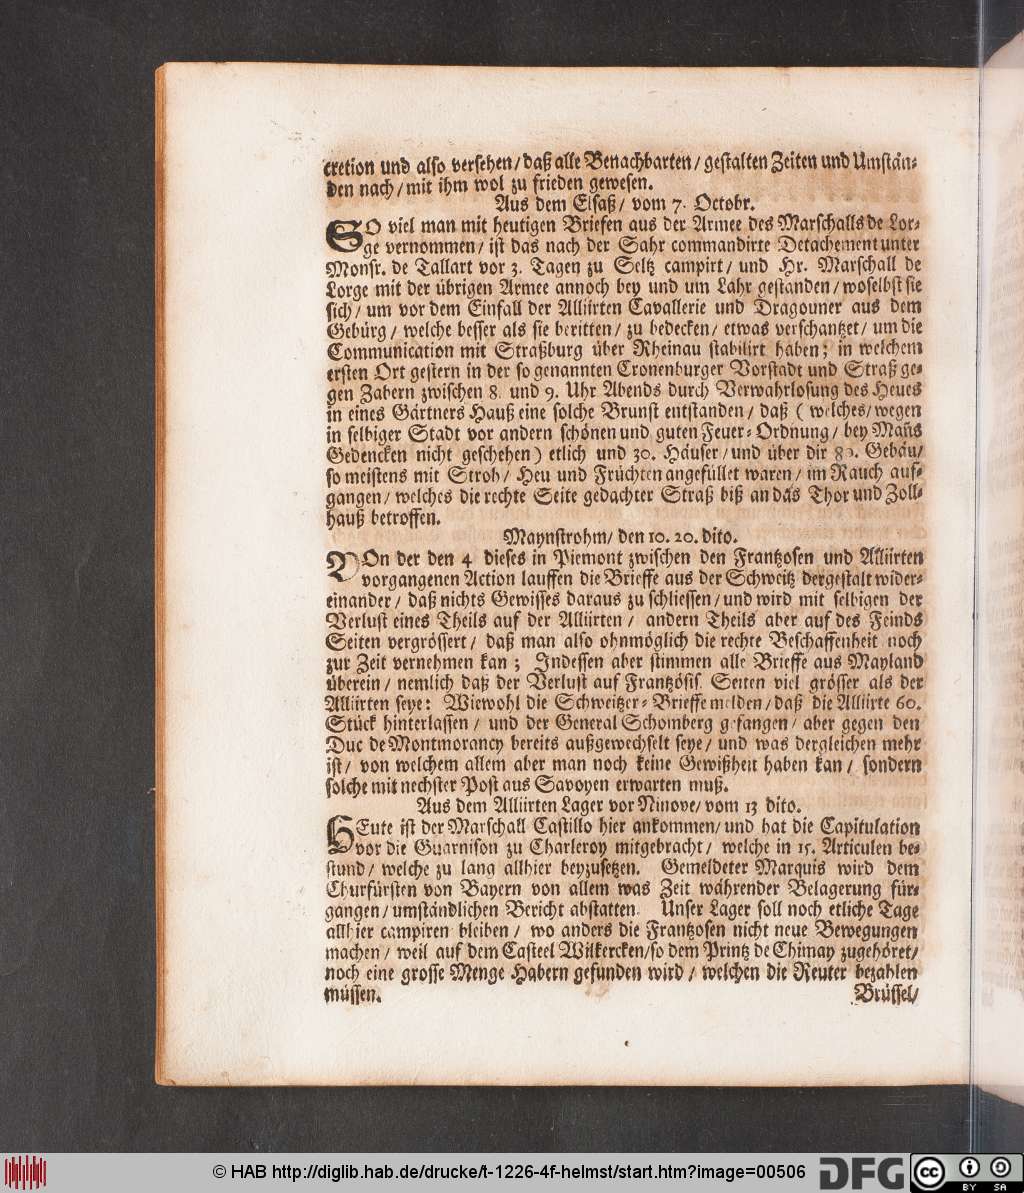 cretion und also versehen/ daß alle Benachbarten/ gestalten Zeiten und Umstän-
den nach/ mit ihm wol zu frieden gewesen.
Aus dem Elsaß/ vom 7. Octobr.
SO viel man mit heutigen Briefen aus der Armee des Marschalls de Lor-
ge vernommen/ ist das nach der Sahr commandirte Detachement unter
Monsr. de Tallart vor 3. Tagen zu Seltz campirt/ und Hr. Marschall de
Lorge mit der übrigen Armee annoch bey und um Lahr gestanden/ woselbst sie
sich/ um vor dem Einfall der Alliirten Cavallerie und Dragouner aus dem
Gebürg/ welche besser als sie beritten/ zu bedecken/ etwas verschantzet/ um die
Communication mit Straßburg über Rheinau stabilirt haben; in welchem
ersten Ort gestern in der so genannten Cronenburger Vorstadt und Straß ge-
gen Zabern zwischen 8. und 9. Uhr Abends durch Verwahrlosung des Heues
in eines Gärtners Hauß eine solche Brunst entstanden/ daß ( welches/ wegen
in selbiger Stadt vor andern schönen und guten Feuer-Ordnung/ bey Mañs
Gedencken nicht geschehen) etlich und 30. Häuser/ und über dir 80. Gebäu/
so meistens mit Stroh/ Heu und Früchten angefüllet waren/ im Rauch auf-
gangen/ welches die rechte Seite gedachter Straß biß an das Thor und Zoll-
hauß betroffen.
Maynstrohm/ den 10. 20. dito.
VOn der den 4 dieses in Piemont zwischen den Frantzosen und Alliirten
vorgangenen Action lauffen die Brieffe aus der Schweitz dergestalt wider-
einander/ daß nichts Gewisses daraus zu schliessen/ und wird mit selbigen der
Verlust eines Theils auf der Alliirten/ andern Theils aber auf des Feinds
Seiten vergrössert/ daß man also ohnmöglich die rechte Beschaffenheit noch
zur Zeit vernehmen kan; Indessen aber stimmen alle Brieffe aus Mayland
überein/ nemlich daß der Verlust auf Frantzösis. Seiten viel grösser als der
Alliirten seye: Wiewohl die Schweitzer-Brieffe melden/ daß die Alliirte 60.
Stück hinterlassen/ und der General Schomberg gefangen/ aber gegen den
Duc de Montmorancy bereits außgewechselt seye/ und was dergleichen mehr
ist/ von welchem allem aber man noch keine Gewißheit haben kan/ sondern
solche mit nechster Post aus Savoyen erwarten muß.
Aus dem Alliirten Lager vor Ninove/ vom 13 dito.
HEute ist der Marschall Castillo hier ankommen/ und hat die Capitulation
vor die Guarnison zu Charleroy mitgebracht/ welche in 15. Articulen be-
stund/ welche zu lang allhier beyzusetzen. Gemeldeter Marquis wird dem
Churfürsten von Bayern von allem was Zeit währender Belagerung für-
gangen/ umständlichen Bericht abstatten. Unser Lager soll noch etliche Tage
allhier campiren bleiben/ wo anders die Frantzosen nicht neue Bewegungen
machen/ weil auf dem Casteel Wilkercken/ so dem Printz de Chimay zugehöret/
noch eine grosse Menge Habern gefunden wird/ welchen die Reuter bezahlen
müssen.
Brüssel/
© HAB http://diglib.hab.de/drucke/t-1226-4f-helmst/start.htm?image=00506
DFG
cc
BY SA